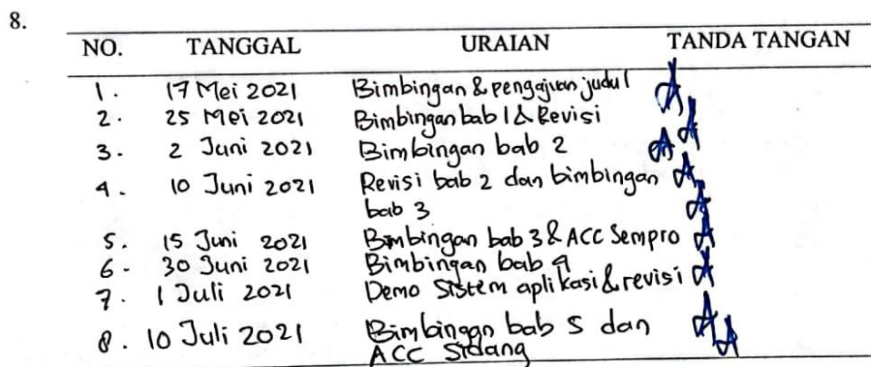 8.
NO. TANGGAL URAIAN TANDA TANGAN
1. 17 Mei 2021 Bimbingan & pengajuan judul
2. 25 Mei 2021 Bimbingan bab 1 & Revisi
3. 2 Juni 2021 Bimbingan bab 2
4. 10 Juni 2021 Revisi bab 2 dan bimbingan
bab 3
5. 15 Juni 2021 Bimbingan bab 3 & ACC Sempro
6. 30 Juni 2021 Bimbingan bab 4
7. 1 Juli 2021 Demo Sistem aplikasi & revisi
8. 10 Juli 2021 Bimbingan bab 5 dan
ACC Sidang